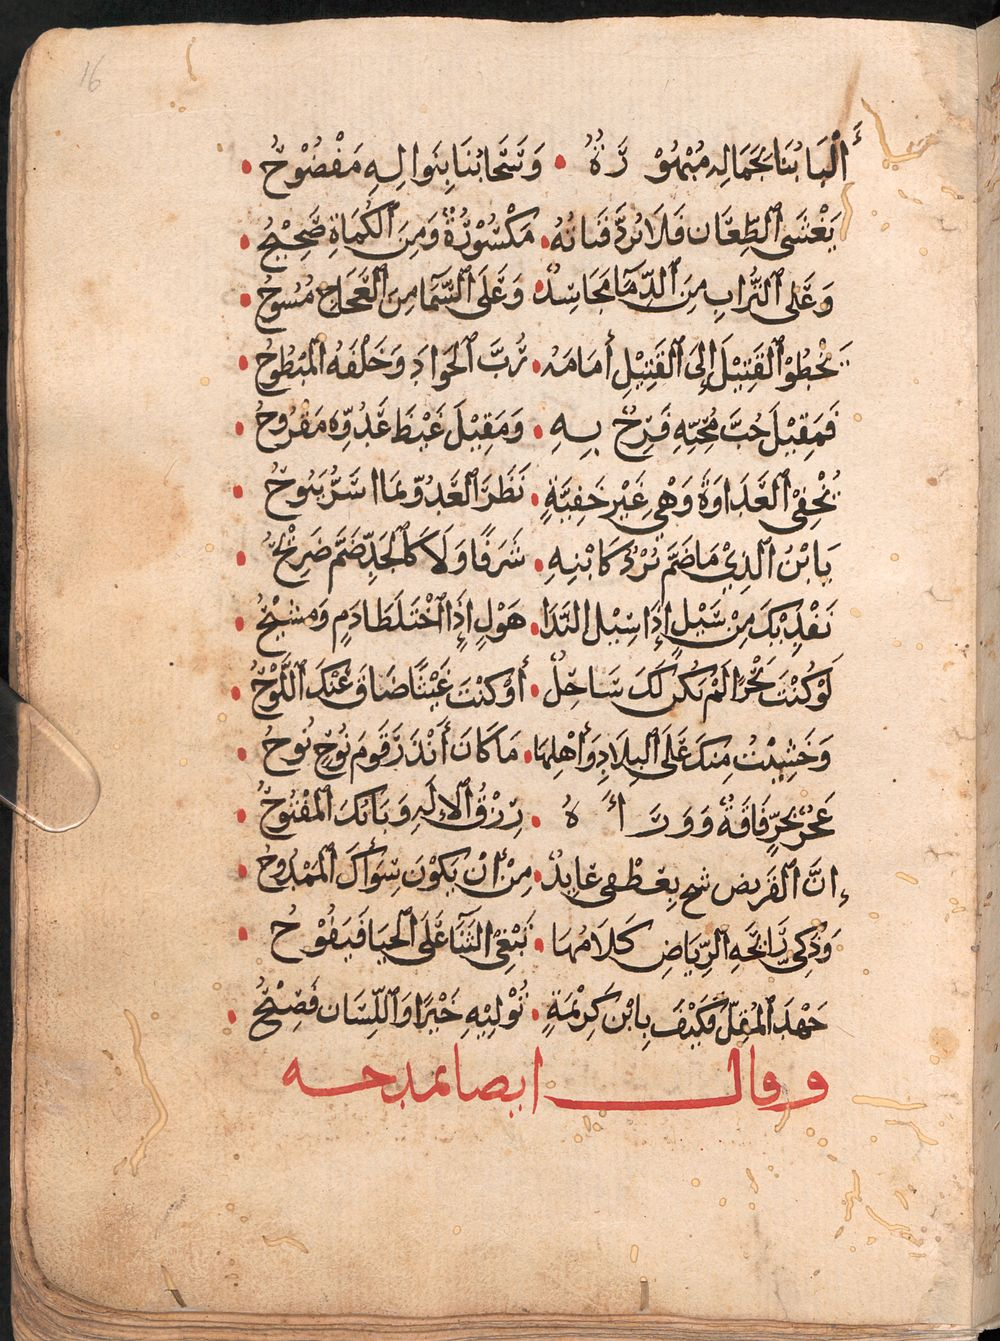 16
أَلْبَابُنَا بِجَمَالِهِ مَبْهُوْرَةٌ • وَسَحَابُنَا بِنَوالِهِ مَفْضُوْحُ •
يَغْشَى ٱلطِّعَان فَلَا يُرَدُّ قَنَاتُهُ • مَكْسُوْرَةٌ وَمِنَ ٱلكُمَاةِ صَحِيْحُ •
وَعَلى ٱلتُّرابِ مِنَ ٱلدِّمَآ مَجَاسِدٌ • وَعَلَى ٱلسَّمَآ مِنَ ٱلعَجَاجِ مُسُوْحُ •
يَخْطُوْ ٱلقَتِيْلَ إِلَى ٱلقَتِيْلِ أَمَامَهُ • رُبَّ ٱلجَوَادِ وَخَلْفَهُ ٱلمَبْطُوْحُ •
فَمَقِيْلُ حُبِّ مُحِبِّهِ فَرِحٌ بِهِ • وَمَقِيْلُ غَيْظِ عَدُوِّهِ مَقْرُوْحُ •
يُخْفِي ٱلعَدَاوَةَ وَهْيَ غَيْرُ خَفِيَّةٍ • نَظَرُ ٱلعَدُوِّ بِمَا اسَرَّ يَبُوْحُ •
يَا بْنَ ٱلَّذِيْ مَا ضَمَّ بُرْدٌ كَابْنِهِ • شَرَفًا وَلَا كَٱلجَدِّ ضَمَّ ضَرِيْحُ •
نَفْدِيْكَ مِنْ سَيْلٍ إِذَا سِيْلَ النَّدَا • هَوْلٍ إِذَا ٱخْتَلَطَا دَمٍ وَمَسِيْحُ •
لَوْ كُنْتَ بَحْرًا لَمْ يَكُن لَكَ سَاحِلٌ • أَوْ كُنْتَ غَيْثًا ضَاقَ عَنْكَ ٱللُّوْحُ •
وَخَشِيْتُ مِنكَ عَلَى ٱلبِلَادِ وَأَهْلِهَا • مَا كَانَ أَنْذَرَ قَومَ نُوْحٍ نُوحُ •
عَجْزٌ بِحُرٍّ فَاقَةٌ وَوَرَاءَهُ • رِزْقُ ٱلإِلَهِ وَبَابُكَ ٱلمَفْتُوْحُ •
إِنَّ ٱلقَرِيض شجٍ بِعِطْفِي عَايِذٌ • مِنْ أَنْ يَكُوْنَ سِوَآكَ ٱلمَمْدُوْحُ •
وَذَكِيُّ رَائِحَهِ ٱلرِّيَاضِ كَلَامُهَا • تَبْغِي ٱلثَّنَآ عَلَى ٱلحَيَا فَيَفُوْحُ •
جَهْدَ ٱلمُقِلِّ فَكَيْفَ بِابْنِ كَرِيْمَةٍ • تُوْلِيْهِ خَيْرًا وَٱللِّسَان فَصِيْحُ •
وقال ايضا يمدحه